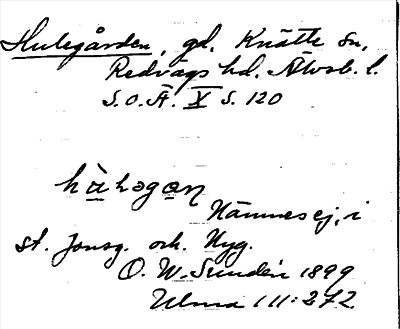 Hulegården, gd. Knätte sn,
Redvägs hd. Älvsb. l.
S.O.Ä. X s. 120
Nämnes ej, i
st. Jonsg. och. Nyg.
O. W. Sundén 1899
Ulma 111:272.